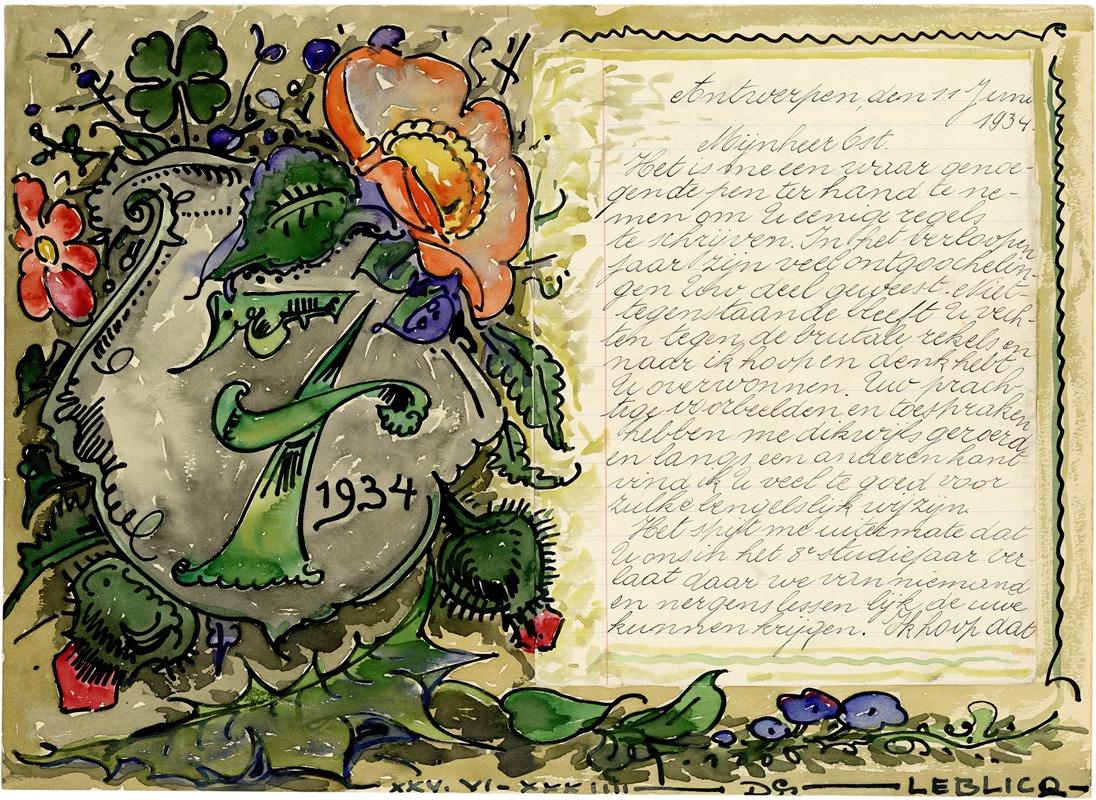 1934
Antwerpen, den 11 Juni
1934.
Mijnheer Ost.
Het is me een waar genoe-
gen de pen ter hand te ne-
men om U eenige regels
te schrijven. In het verloopen
jaar zijn veel ontgoochelin-
gen Uw deel geweest. Niet-
tegenstaande bleeft U vech-
ten tegen de brutale rekels en
naar ik hoop en denk hebt
U overwonnen. Uw prach-
tige voorbeelden en toespraken
hebben me dikwijls geroerd
en langs een anderen kant
vind ik U veel te goed voor
zulke bengels lijk wij zijn.
Het spijt me uitermate dat
U ons in het 8e studiejaar ver
laat daar we van niemand
en nergens lessen lijk de uwe
kunnen krijgen. Ik hoop dat
XXV. VI - XXXIIII
LEBLICQ